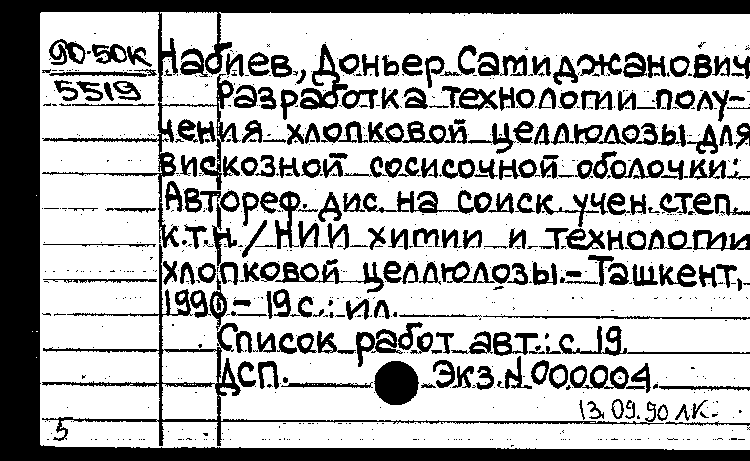 90-50к
5519
Набиев, Доньер Сатиджанович
Разработка технологии полу-
чения хлопковой целлюлозы для
вискозной сосисочной оболочки:
Автореф. дис. на соиск. учен. степ.
к.т.н. / НИИ химии и технологии
хлопковой целлюлозы.- Ташкент,
1990.- 19 с.: ил.
Список работ авт.: с. 19.
ДСП. Экз. N 000004.
13.09.90 ЛК.
5